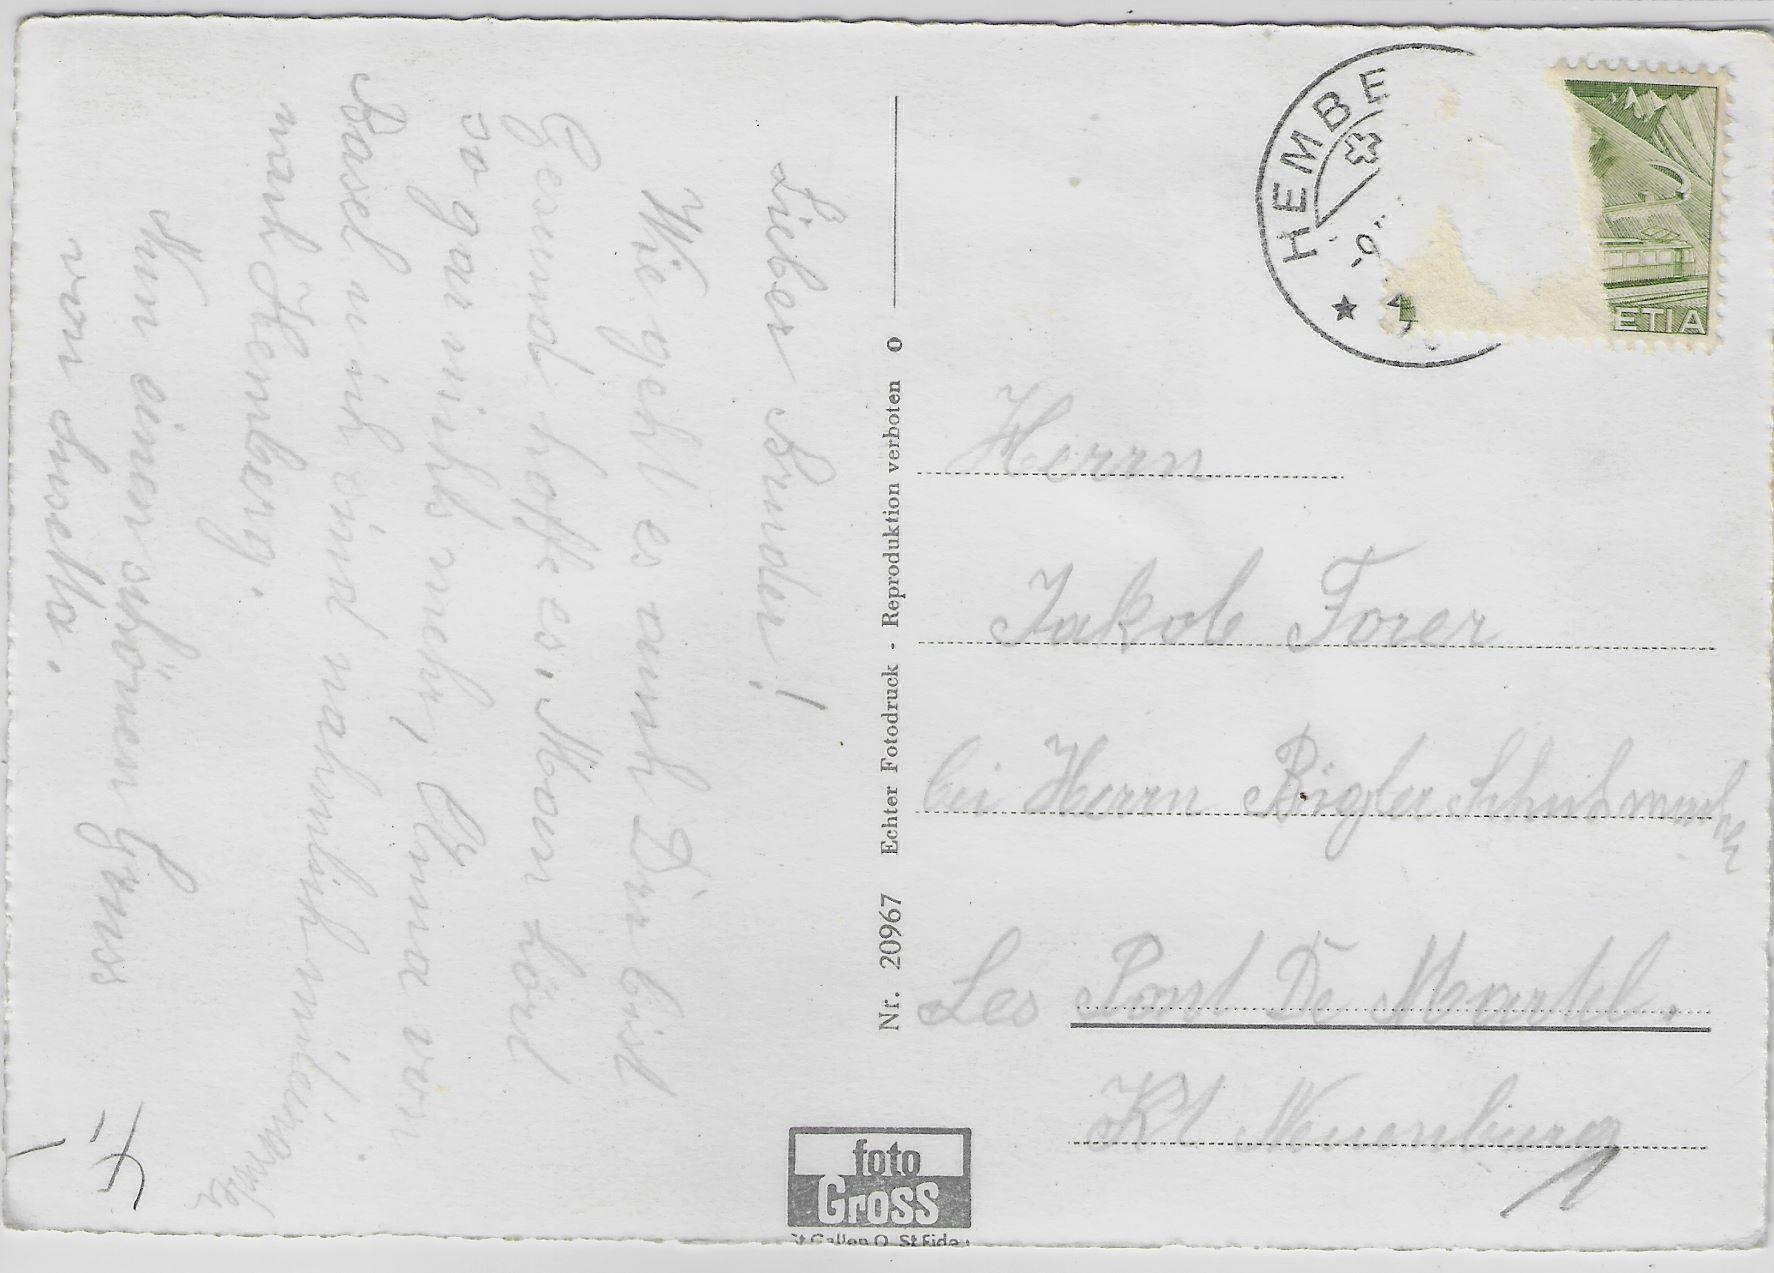 Lieber Bruder!
Wie geht es auch Dir bist
Gesund hoffe es. Man hört
so gar nichts mehr, Anna von
Basel u ich sind nahmlich miteinander
nach Hemberg.
Nun einen schönen Gruss
von Rösetta.
Nr. 20967 Echter Fotodruck - Reproduktion verboten
foto
Gross
St.Gallen O. St.Fiden
HEMBE
-9.
ETIA
Herrn
Jakob Forer
bei Herrn Bigler Schuhmacher
Les Pont De Martel.
Kt Neuenburg